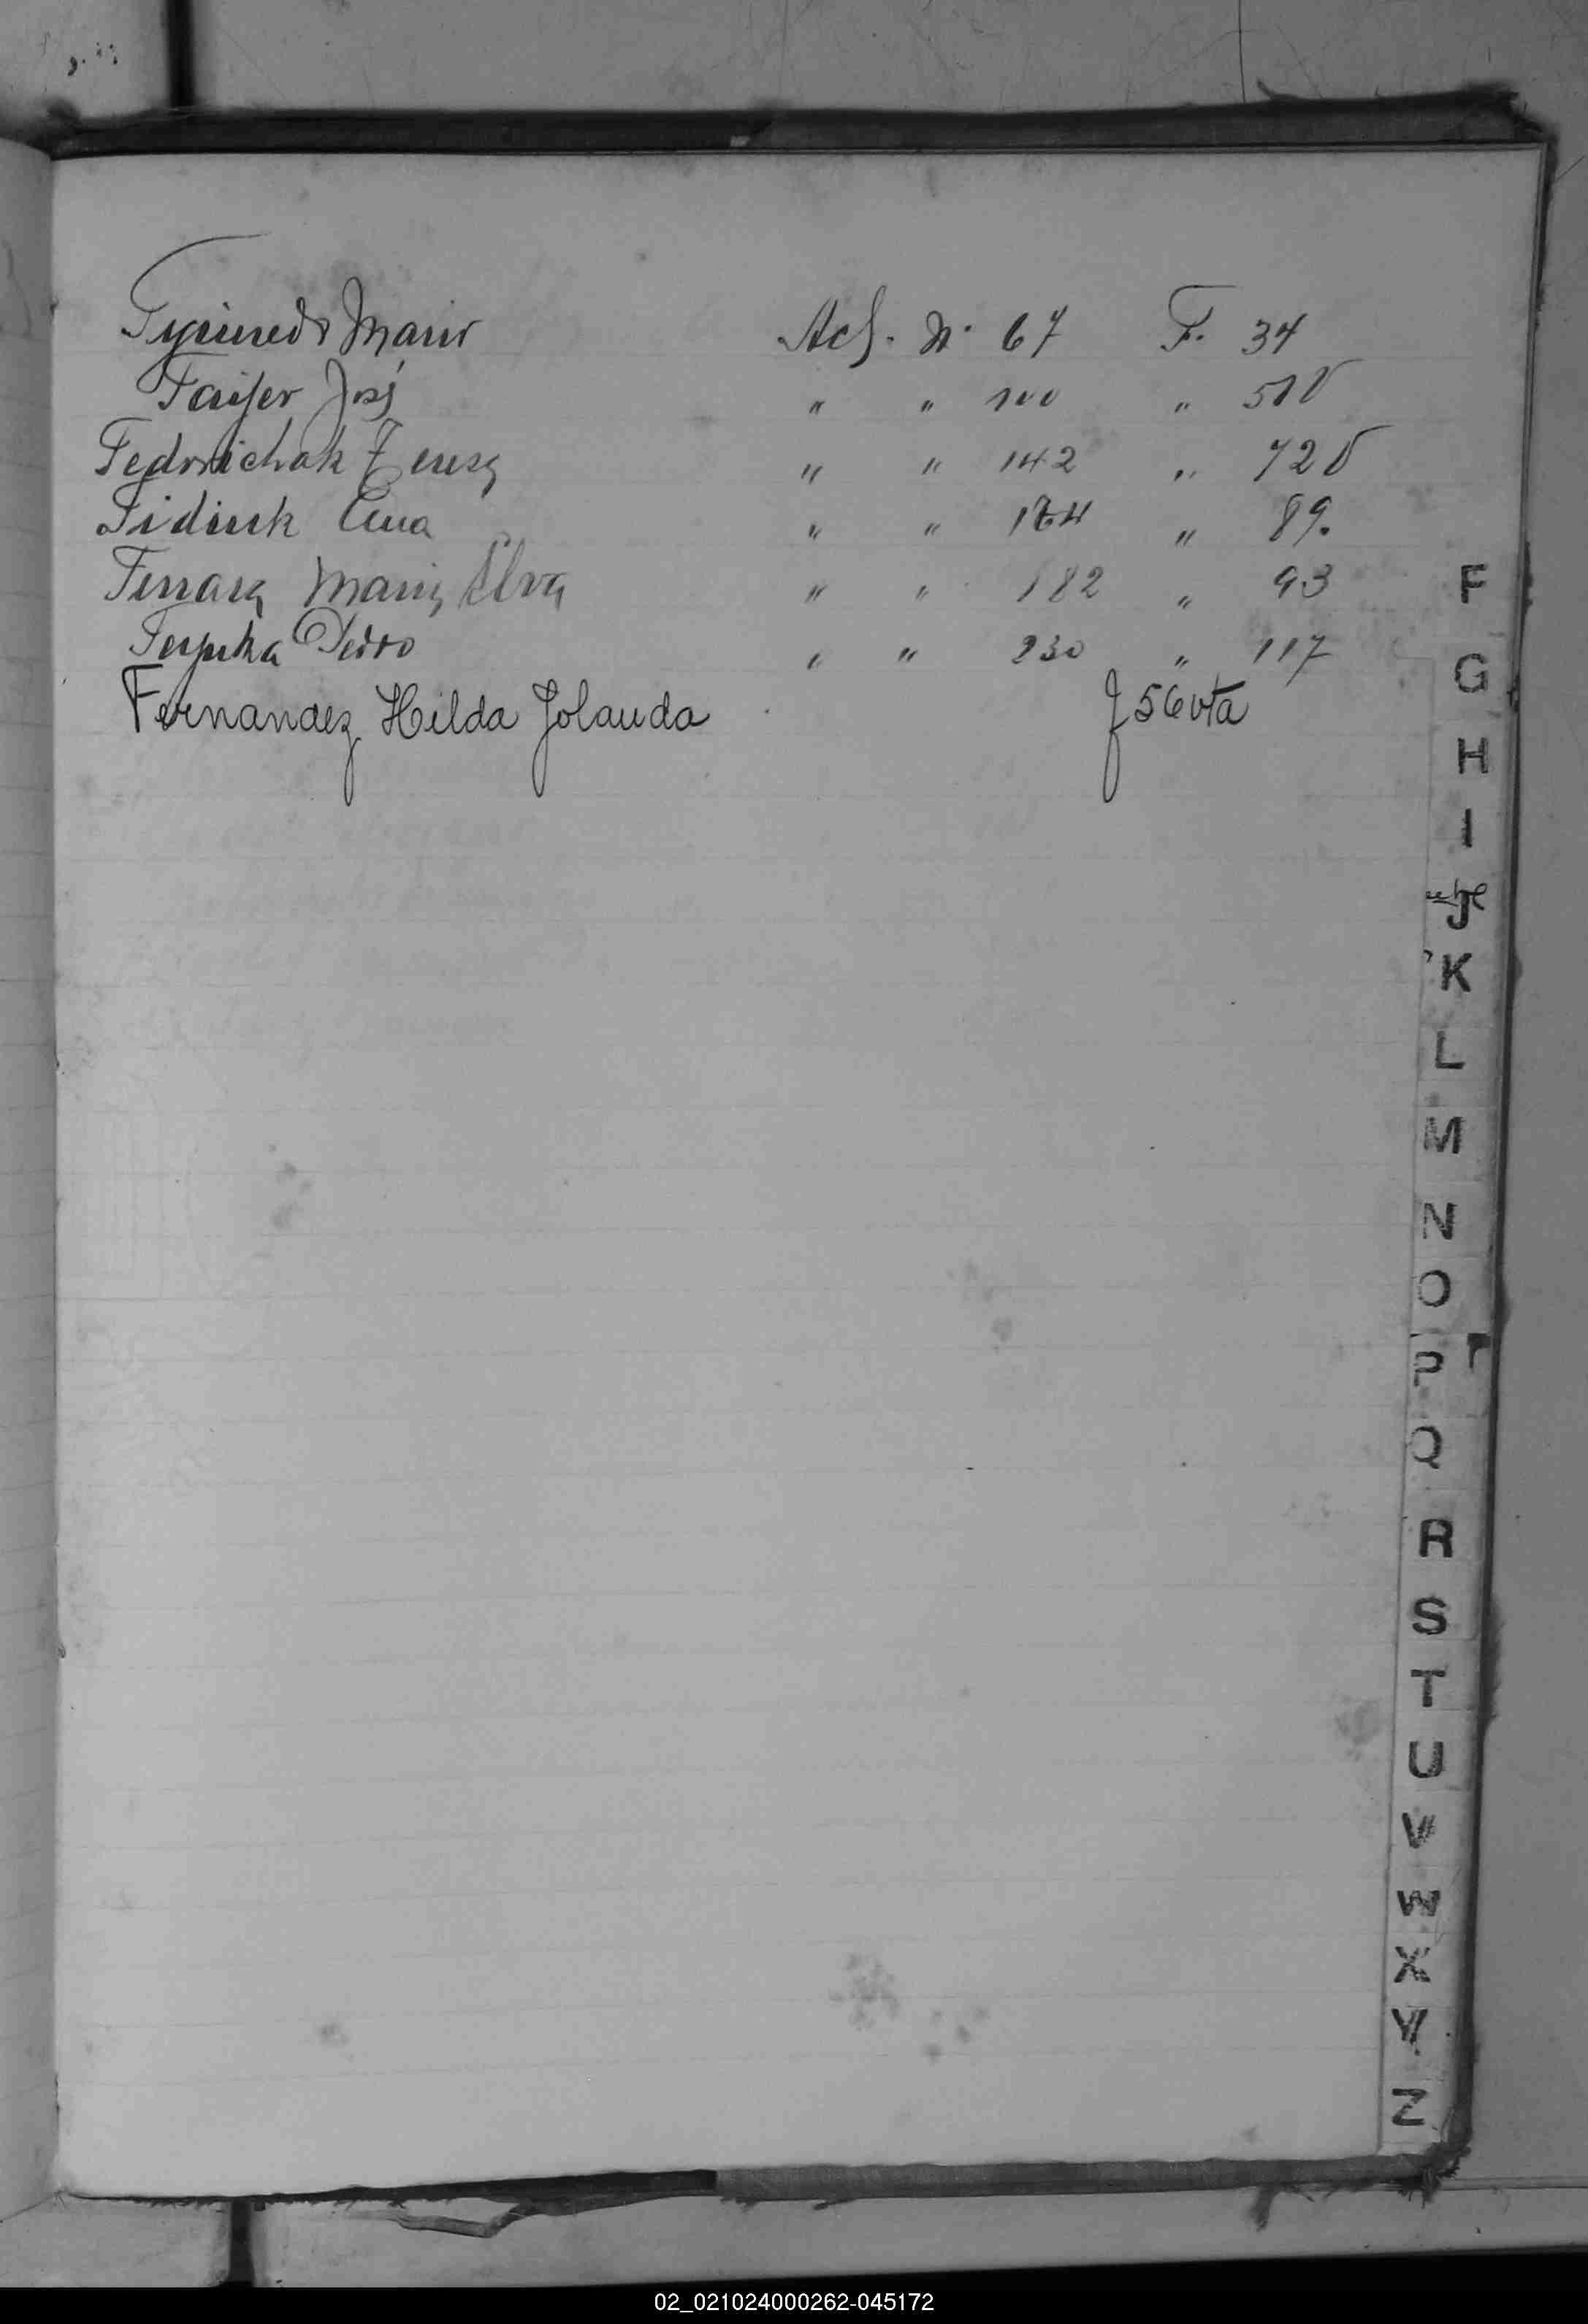 Mario Act. N. 67 F. 34
Faifer José " " 100 " 51V
Fedorichak Teresa " " 142 " 72V
Fidiuk Ana " " 174 " 89.
Ferrara Maria Elva " " 182 " 93
Pedro " " 230 " 117
Fernandez Hilda Jolanda f 56vta
F
G
H
I
J
K
L
M
N
O
P
Q
R
S
T
U
V
W
X
Y
Z
02_021024000262-045172